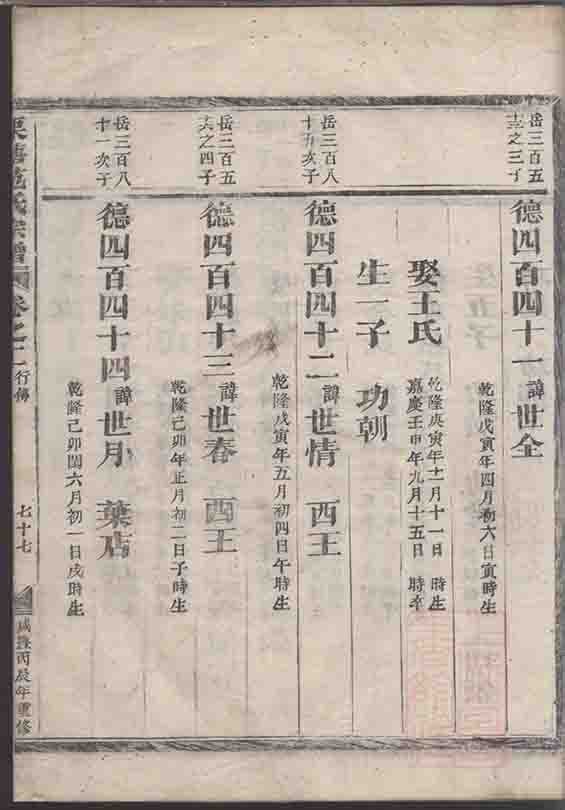 岳三百五
十六之三子
德四百四十一 諱世全
乾隆戊寅年四月初六日寅時生
娶王氏
乾隆庚寅年十一月十一日 時生
嘉慶壬申年九月十五日 時卒
生一子 功朝
岳三百八
十五次子
德四百四十二 諱世情 西王
乾隆戊寅年五月初四日午時生
岳三百五
十六之四子
德四百四十三 諱世春 西王
乾隆己卯年正月初二日子時生
岳三百八
十一次子
德四百四十四 諱世月 葉店
乾隆己卯閏六月初一日戌時生
氏宗譜 卷之二 行傳 七十七 咸豐丙辰年重修